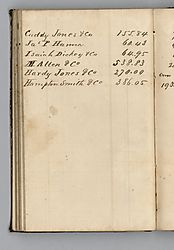 Caddy Jones & Co 155.84
Jas T Hanna 60.43
Isaiah Dickey & Co 64.95
M Allen & Co 539.83
Hardy Jones & Co 270.00
Hampton Smith & Co 386.05
193